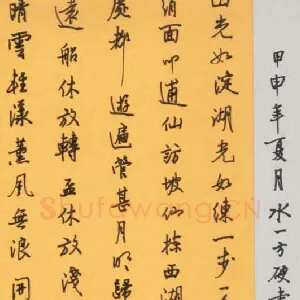 甲申年夏月水一方硬書
山光如淀湖光如練一步一
綃面叩逋仙訪坡仙揀西湖
處都遊遍管甚月明歸
遠船休放轉盃休放淺
晴雲輕漾薰風無浪開
Shufawang.CN